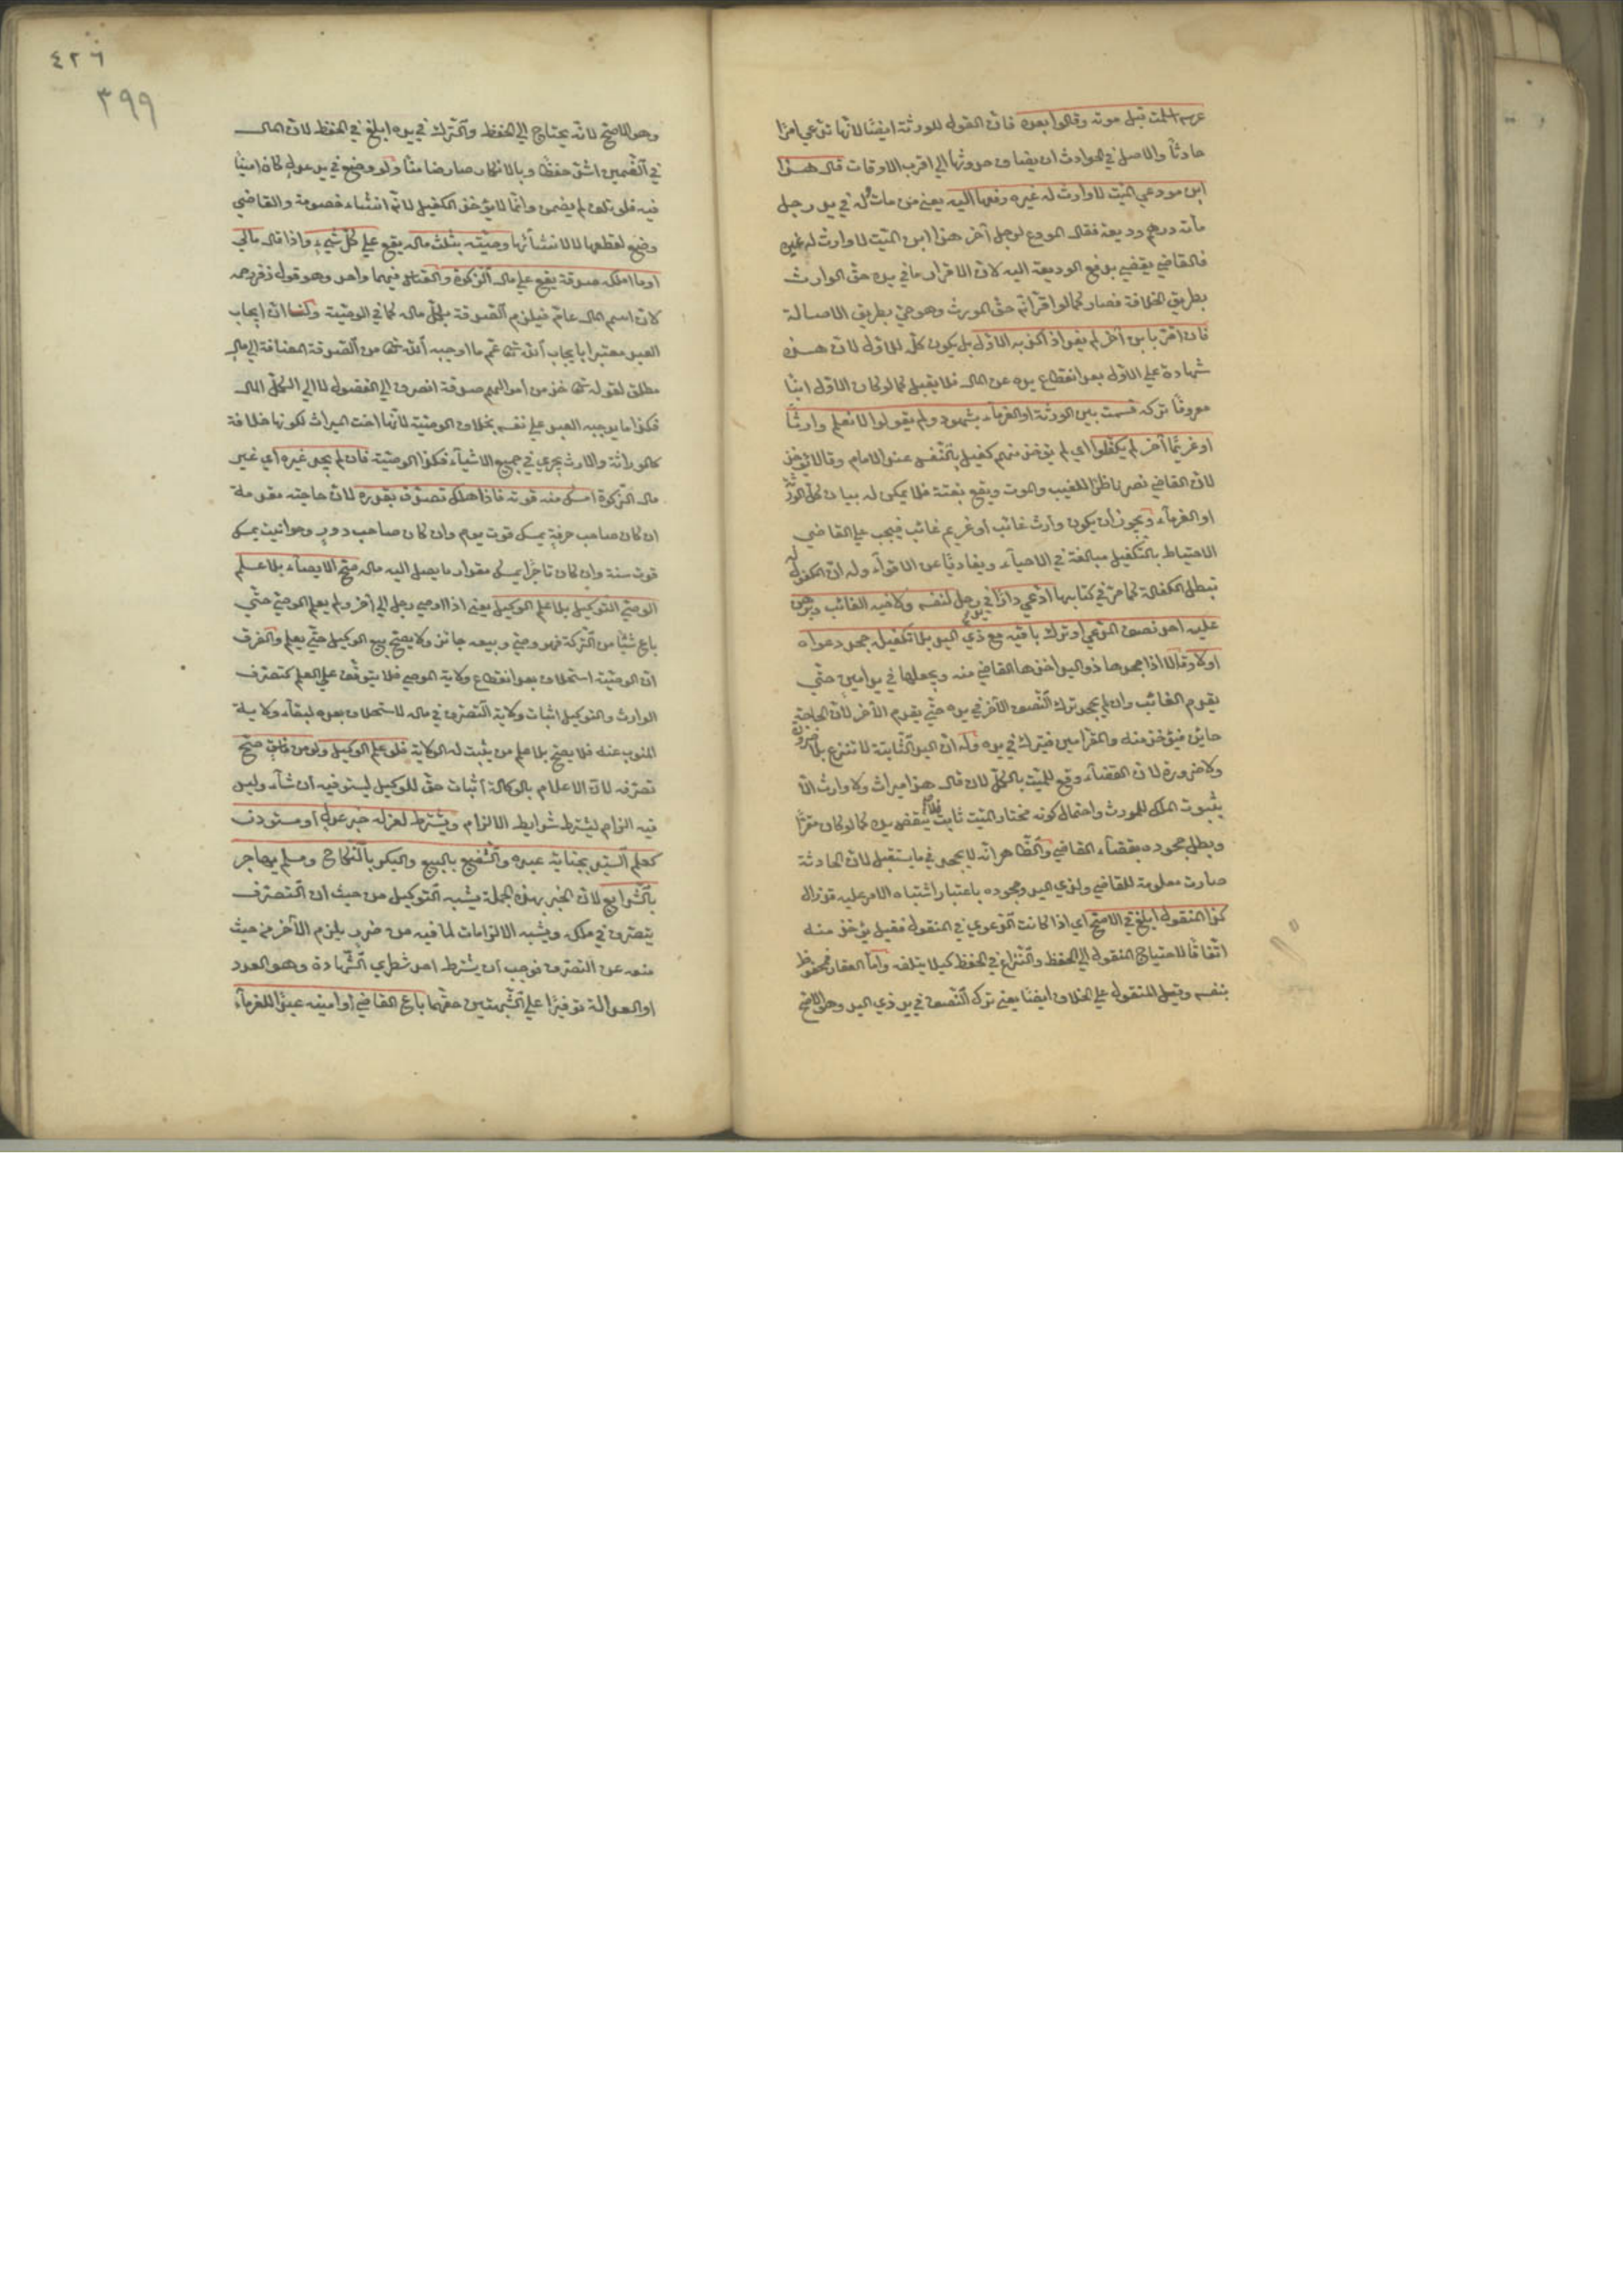 عرسه اسلمت قبل موته وقالوا بعده فان القول للورثة ايضًا لانّها تدّعي امرًا
حادثًا والاصل في الحوادث ان يضاف حدوثها الي اقرب الاوقات قال هذا
ابن مودعي الميّت لا وارث له غيره دفعها اليه يعني من مات وله في يد رجل
مأته درهم وديعة فقال المودع لرجل آخر هذا ابن الميّت لا وارث له غيره
فالقاضي يقضي بدفع الوديعة اليه لانّ الاقرار ما في يده حقّ الوارث
بطريق الخلافة فصار كما لو اقرّ انّه حقّ المورث وهو حيّ بطريق الاصالة
فان اقرّ بابن آخر لم يفد اذ اكذبه الاوّل بل يكون كلّه للاوّل لانّ هذه
شهادة علي الاوّل بعد انقطاع يده عن المال فلا يقبل كما لو كان الاوّل ابنًا
معروفًا تركة قسمت بين الورثة او الغرمآء بشهود ولم يقولوا لا نعلم وارثًا
او غريمًا آخر لم يكفّلوا اي لم يؤخذ منهم كفيل بالنّفس عند الامام وقالا يؤخذ
لانّ القاضي نصب ناظرًا للغيب والموت ويقع بغتة فلا يمكن له بيان كلّ الورثة
او الغرمآء ويجوز أن يكون وارث غائب او غريم غائب فيجب علي القاضي
الاحتياط بالتكفيل مبالغة في الاحيآء وتفاديًا عن الاتوآء وله انّ المكفول له
تبطل الكفالة كما مرّ في كتابها ادّعي دارًا في يد رجل لنفسه ولاخيه الغائب وبرهن
عليه اخذ نصف المدّعي وترك باقيه مع ذي اليد بلا تكفيل جحد دعواه
اولا وقالا اذا جحدها ذو اليد اخذها القاضي منه ويجعلها في يد امين حتّي
يقدم الغائب وان لم يجحد ترك النّصف الآخر في يده حتّي يقدم الآخر لانّ الجاحد
خائن فيؤخذ منه والمقرّ امين فيترك في يده وله انّ اليد الثّابتة لا تنزع بلا ضرورة
ولا ضرورة لانّ القضآء وقع للميّت بالكلّ لان قال هذا ميراث ولا وارث الّا
بثبوت الملك للمورث واحتمال كونه مختار الميّت ثابت فلا ينقض يده كما لو كان مقرًّا
وبطل جحوده بقضآء القاضي والظّاهر انّه لا يجحد في ما يستقبل لانّ الحادثة
صارت معلومة للقاضي ولذي اليد وجحوده باعتبار اشتباه الامر عليه قد زال
كذا المنقول ابلغ في الاصحّ اي اذا كانت الدّعوي في المنقول فقيل يؤخذ منه
اتّفاقًا لاحتياج المنقول الي الحفظ والنّزاع في الحفظ كيلا يتلفه وامّا العقار فمحفوظ
بنفسه وقيل المنقول علي الخلاف ايضًا يعني ترك النّصف في يد ذي اليد وهو الاصحّ
٤٢٦
٣٩٩
وهو الاصحّ لانّه يحتاج الي الحفظ والتّرك في يده ابلغ في الحفظ لانّ المال
في الضّمين اشدّ حفظًا وبالانكار صار ضامنًا ولو وضع في يد عدل كان امينًا
فيه فلو تلف لم يضمن وانّما لا يؤخذ الكفيل لانّه انشاء خصومة والقاضي
وضع لقطعها لا لانشائها وصيّته بثلث ماله يقع علي كلّ شيء واذا قال مالي
او ما املك صدقة يقع علي مال الزّكوة والقياس فيهما واحد وهو قول زفر رحمه
لانّ اسم المال عامّ فيلزم الصّدقة بكلّ ماله كما في الوصيّة ولنا انّ ايجاب
العبد معتبر بايجاب الله تعا ثم ما اوجبه الله تعا من الصّدقة المضافة الي مال
مطلق لقوله تعا خذ من اموالهم صدقة انصرف الي الفضول لا الي الكلّ المال
فكذا ما يوجبه العبد علي نفسه بخلاف الوصيّة لانّها اخت الميراث لكونها خلافة
كالوراثة والارث يجري في جميع الاشيآء فكذا الوصيّة فان لم يجد غيره اي غير
مال الزّكوة امسك منه قوته فاذا ملك تصدّق بقدره لانّ حاجته مقدمة
ان كان صاحب حرفة يمسك قوت يوم وان كان صاحب دور وحوانيت يمسك
قوت سنة وان كان تاجرًا يمسك مقدار ما يصل اليه ماله صحّ الايصآء بلا علم
الوصيّ لا التوكيل بلا علم الوكيل يعني اذا اوصي رجل الي آخر ولم يعلم الوصيّ حتّي
باع شيئًا من التّركة فهو وصيّ وبيعه جائز ولا يصحّ بيع الوكيل حتّي يعلم والفرق
انّ الوصيّة استخلاف بعد انقطاع ولاية الموصي فلا يتوقّف علي العلم كتصرّف
الوارث والتوكيل اثبات ولاية التّصرّف في ماله لا استخلاف بعده لبقآء ولاية
المنوب عنه فلا يصحّ بلا علم من يثبت له الوكالة فلو علم الوكيل ولو من فاسق صحّ
تصرّفه لانّ الاعلام بالوكالة اثبات حقّ للوكيل ليستوفيه ان شآء وليس
فيه الزام ليشترط شرايط الالزام ويشترط لعزله خبر عدل او مستورين
كعلم السّيّد بجناية عبده والشّفيع بالبيع والبكر بالنّكاح ومسلم يهاجر
بالشّرايع لانّ الخبر بهذه الجملة يشبه التّوكيل من حيث انّ المتصرّف
يتصرّف في ملكه ويشبه الالزامات لما فيه من ضرب يلزم الآخر من حيث
منعه عن التّصرّف فوجب ان يشترط احد شطري الشّهادة وهو العدد
او العدالة توفيرًا علي الشّبهتين حقّهما باع القاضي او امينه عبدًا للغرمآء